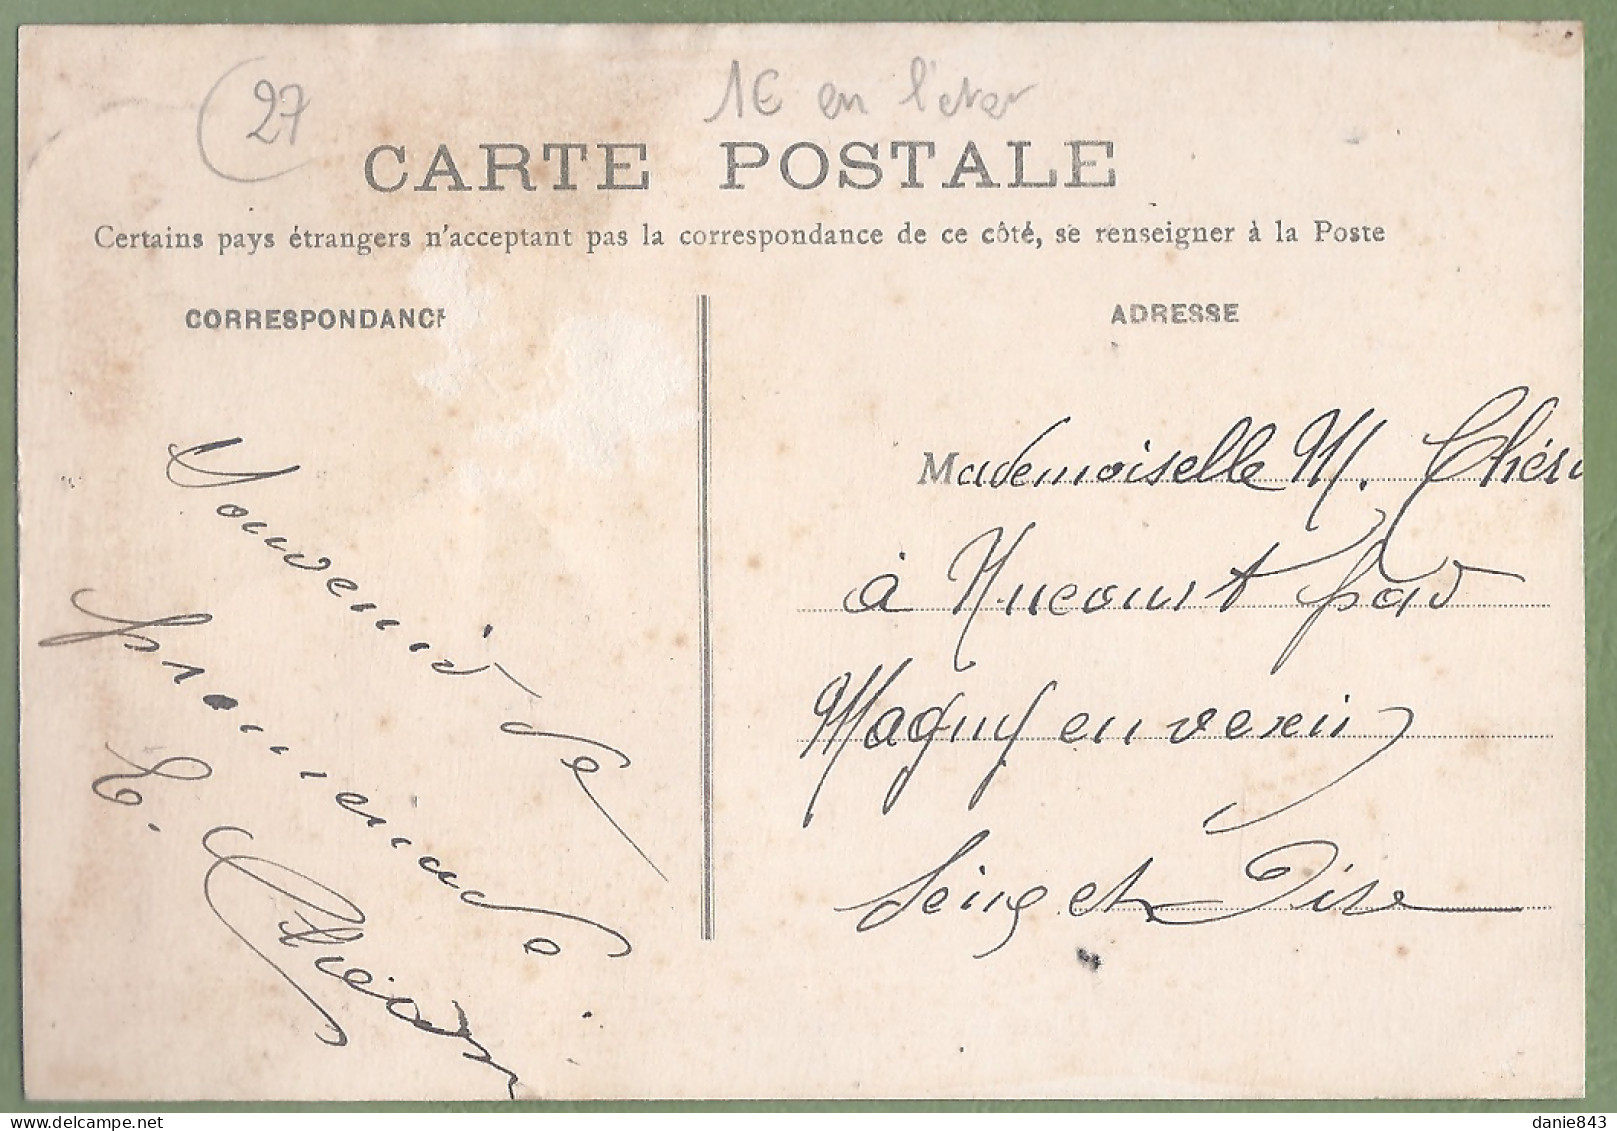 27
1€ en l'etat
CARTE POSTALE
Certains pays étrangers n'acceptent pas la correspondance de ce côté, se renseigner à la Poste
CORRESPONDANCE
Souvenir de
promenade
E.
ADRESSE
Mademoiselle M. Chér
à Nucourt par
Magny en vexin
Seine et Oise
danie843